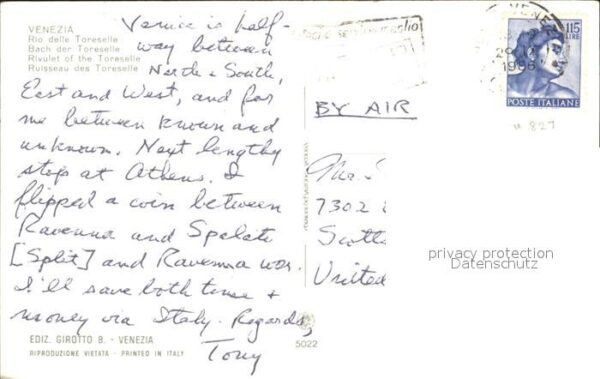 VENEZIA
Rio delle Toreselle
Bach der Toreselle
Rivulet of the Toreselle
Ruisseau des Toreselle
Venice is half-
way between
North & South,
East and West, and for
me between known and
unknown. Next lengthy
stop at Athens. I
flipped a coin between
Ravenna and Spalato
[Split] and Ravenna won.
I'll save both time &
money via Italy. Regards,
Tony
EDIZ. GIROTTO B. - VENEZIA
RIPRODUZIONE VIETATA - PRINTED IN ITALY
5022
VENEZIA
1966
115
LIRE
POSTE ITALIANE
# 827
BY AIR
7302
Scotts
United
privacy protection
Datenschutz